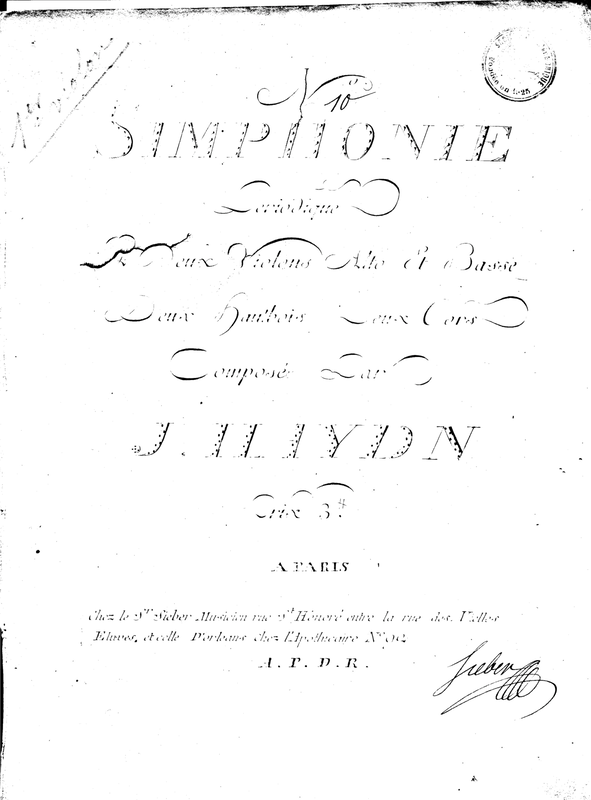 1er violon
No
10
SIMPHONIE
Periodique
A Deux Violons Alto Et Basse
Deux Hautbois Deux Cors
Composé Par
J. HAYDN
Prix 3#
A PARIS
Chez le Sr Sieber Musicien rue St Honoré entre la rue des Vielles
Etuves, et celle D'orleans chez l'Apothicaire No 92
A. P. D. R.
Sieber